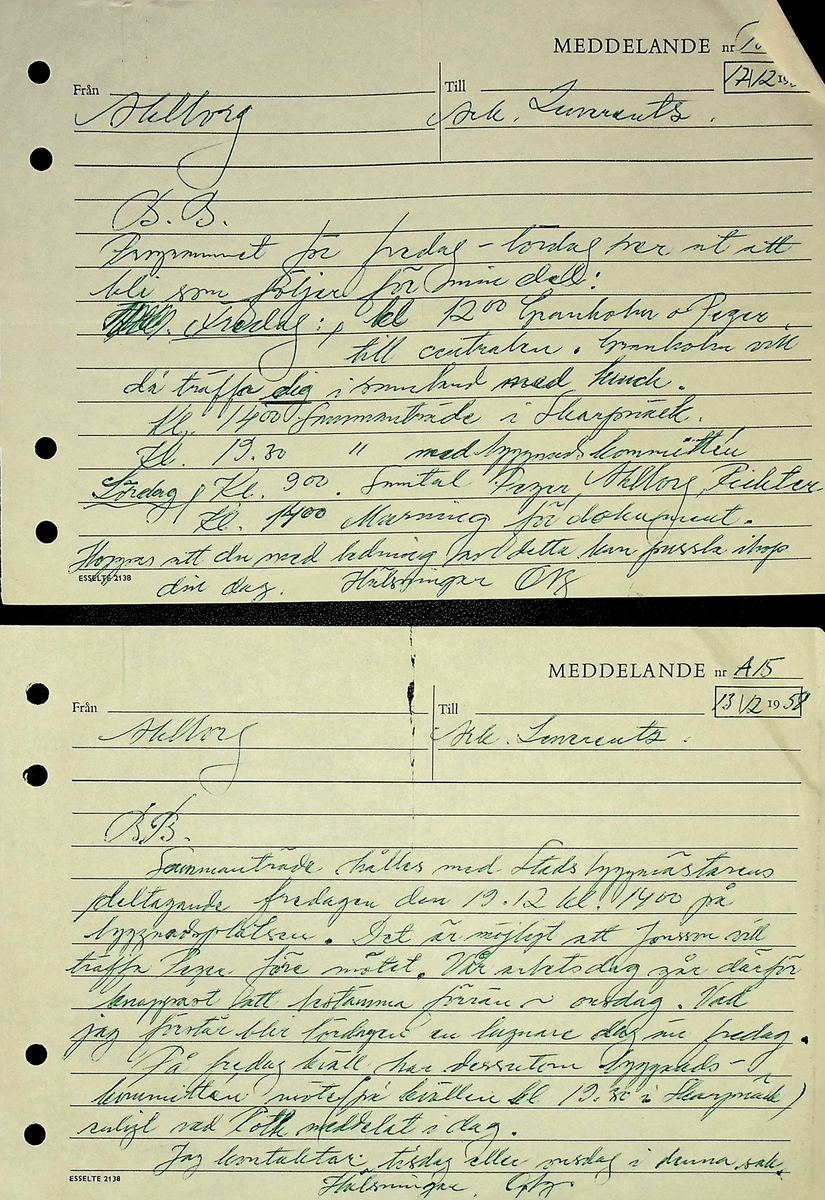 MEDDELANDE nr
17/12 19
Från Till
Ahlborg Ark. Lewerentz.
B.B.
Programmet för fredag - lördag ser ut att
bli som följer för min del:
Fredag: kl 12 00 Granholm o Pezer
till centralen. Granholm vill
då träffa dig i samband med lunch.
Kl. 14 00 Sammanträde i Skarpnäck.
Kl. 19.30 " med byggnadskommittén
Lördag, Kl. 9 00. Samtal Pezer, Ahlborg, Richter
Kl. 14 00 för dokument.
Hoppas att du med ledning av detta kan pussla ihop
din dag. Hälsningar
ESSELTE 2138
MEDDELANDE nr A15
13/12 1958
Från Till
Ahlborg Ark. Lewerentz.
B.B.
Sammanträde hålles med Stadsbyggmästarens
deltagande fredagen den 19.12 kl. 14 00 på
byggnadsplatsen. Det är möjligt att Jonsson vill
träffa Pezer före mötet. Vår arbetsdag går därför
knappast att bestämma förrän ~ onsdag. Vad
jag förstår blir lördagen en lugnare dag än fredag.
På fredag kväll har dessutom byggnads-
kommittén möte (på kvällen kl 19.30 i Skarpnäck)
enligt vad Roth meddelat i dag.
Jag kontaktar tisdag eller onsdag i denna sak.
Hälsningar
ESSELTE 2138